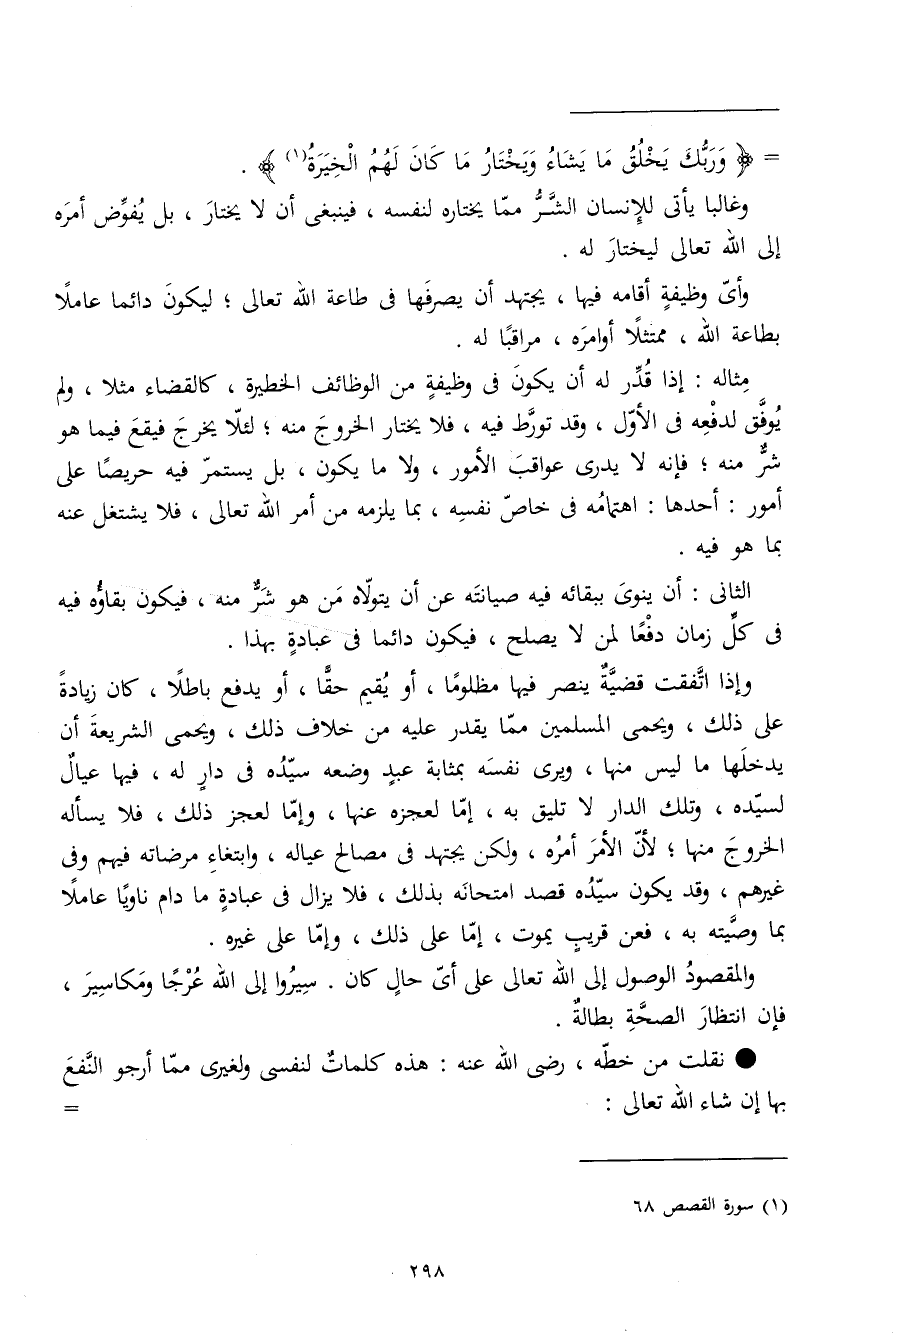 = ﴿ وَرَبُّكَ يَخْلُقُ مَا يَشَاءُ وَيَخْتَارُ مَا كَانَ لَهُمُ الْخِيَرَةُ(١) ﴾ .
وغالبا يأتى للإنسان الشَّرُّ ممّا يختاره لنفسه ، فينبغى أن لا يختارَ ، بل يُفوِّض أمرَه
إلى الله تعالى ليختارَ له .
وأىّ وظيفةٍ أقامه فيها ، يجتهد أن يصرفَها فى طاعة الله تعالى ؛ ليكونَ دائما عاملًا
بطاعة الله ، ممتثلًا أوامرَه ، مراقبًا له .
مِثاله : إذا قُدِّر له أن يكونَ فى وظيفةٍ من الوظائف الخطيرة ، كالقضاء مثلا ، ولم
يُوفَّق لدفْعِه فى الأوّل ، وقد تورَّط فيه ، فلا يختار الخروجَ منه ؛ لئلّا يخرجَ فيقعَ فيما هو
شرٌّ منه ؛ فإنه لا يدرى عواقبَ الأمور ، ولا ما يكون ، بل يستمرّ فيه حريصًا على
أمور : أحدها : اهتمامُه فى خاصّ نفسِه ، بما يلزمه من أمر الله تعالى ، فلا يشتغل عنه
بما هو فيه .
الثانى : أن ينوىَ ببقائه فيه صيانتَه عن أن يتولّاه مَن هو شَرٌّ منه ، فيكون بقاؤُه فيه
فى كلِّ زمان دفْعًا لمن لا يصلح ، فيكون دائما فى عبادةٍ بهذا .
وإذا اتَّفقت قضيَّةٌ ينصر فيها مظلومًا ، أو يُقيم حقًّا ، أو يدفع باطلًا ، كان زيادةً
على ذلك ، ويحمى المسلمين ممّا يقدر عليه من خلاف ذلك ، ويحمى الشريعةَ أن
يدخلَها ما ليس منها ، ويرى نفسَه بمثابة عبدٍ وضعه سيّدُه فى دارٍ له ، فيها عيالٌ
لسيّده ، وتلك الدار لا تليق به ، إمّا لعجزه عنها ، وإمّا لعجز ذلك ، فلا يسأله
الخروجَ منها ؛ لأنّ الأمرَ أمرُه ، ولكن يجتهد فى مصالح عياله ، وابتغاءِ مرضاته فيهم وفى
غيرهم ، وقد يكون سيّدُه قصد امتحانَه بذلك ، فلا يزال فى عبادةٍ ما دام ناويًا عاملًا
بما وصَّيته به ، فعن قريبٍ يموت ، إمّا على ذلك ، وإمّا على غيره .
والمقصودُ الوصول إلى الله تعالى على أىّ حالٍ كان . سِيرُوا إلى الله عُرْجًا ومَكاسِيرَ ،
فإن انتظارَ الصحَّةِ بطالةٌ .
● نقلت من خطّه ، رضى الله عنه : هذه كلماتٌ لنفسى ولغيرى ممّا أرجو النَّفعَ
بها إن شاء الله تعالى : =
(١) سورة القصص ٦٨
٢٩٨